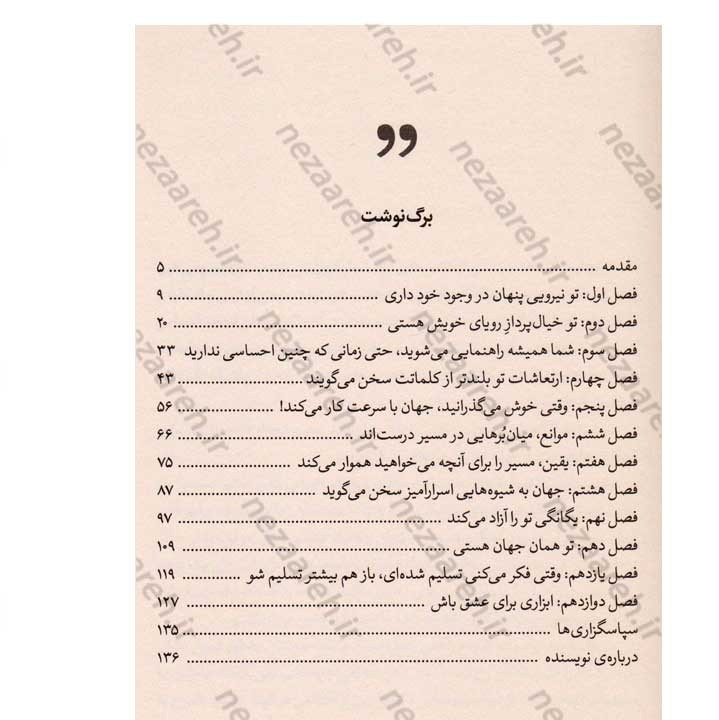 برگ‌نوشت
مقدمه ........ ۵
فصل اول: تو نیرویی پنهان در وجود خود داری ........ ۹
فصل دوم: تو خیال‌پردازِ رویای خویش هستی ........ ۲۰
فصل سوم: شما همیشه راهنمایی می‌شوید، حتی زمانی که چنین احساسی ندارید ۳۳
فصل چهارم: ارتعاشات تو بلندتر از کلماتت سخن می‌گویند ........ ۴۳
فصل پنجم: وقتی خوش می‌گذرانید، جهان با سرعت کار می‌کند! ........ ۵۶
فصل ششم: موانع، میان‌بُرهایی در مسیر درست‌اند ........ ۶۶
فصل هفتم: یقین، مسیر را برای آنچه می‌خواهید هموار می‌کند ........ ۷۵
فصل هشتم: جهان به شیوه‌هایی اسرارآمیز سخن می‌گوید ........ ۸۷
فصل نهم: یگانگی تو را آزاد می‌کند ........ ۹۷
فصل دهم: تو همان جهان هستی ........ ۱۰۹
فصل یازدهم: وقتی فکر می‌کنی تسلیم شده‌ای، باز هم بیشتر تسلیم شو ........ ۱۱۹
فصل دوازدهم: ابزاری برای عشق باش ........ ۱۲۷
سپاسگزاری‌ها ........ ۱۳۵
درباره‌ی نویسنده ........ ۱۳۶
nezaareh.ir